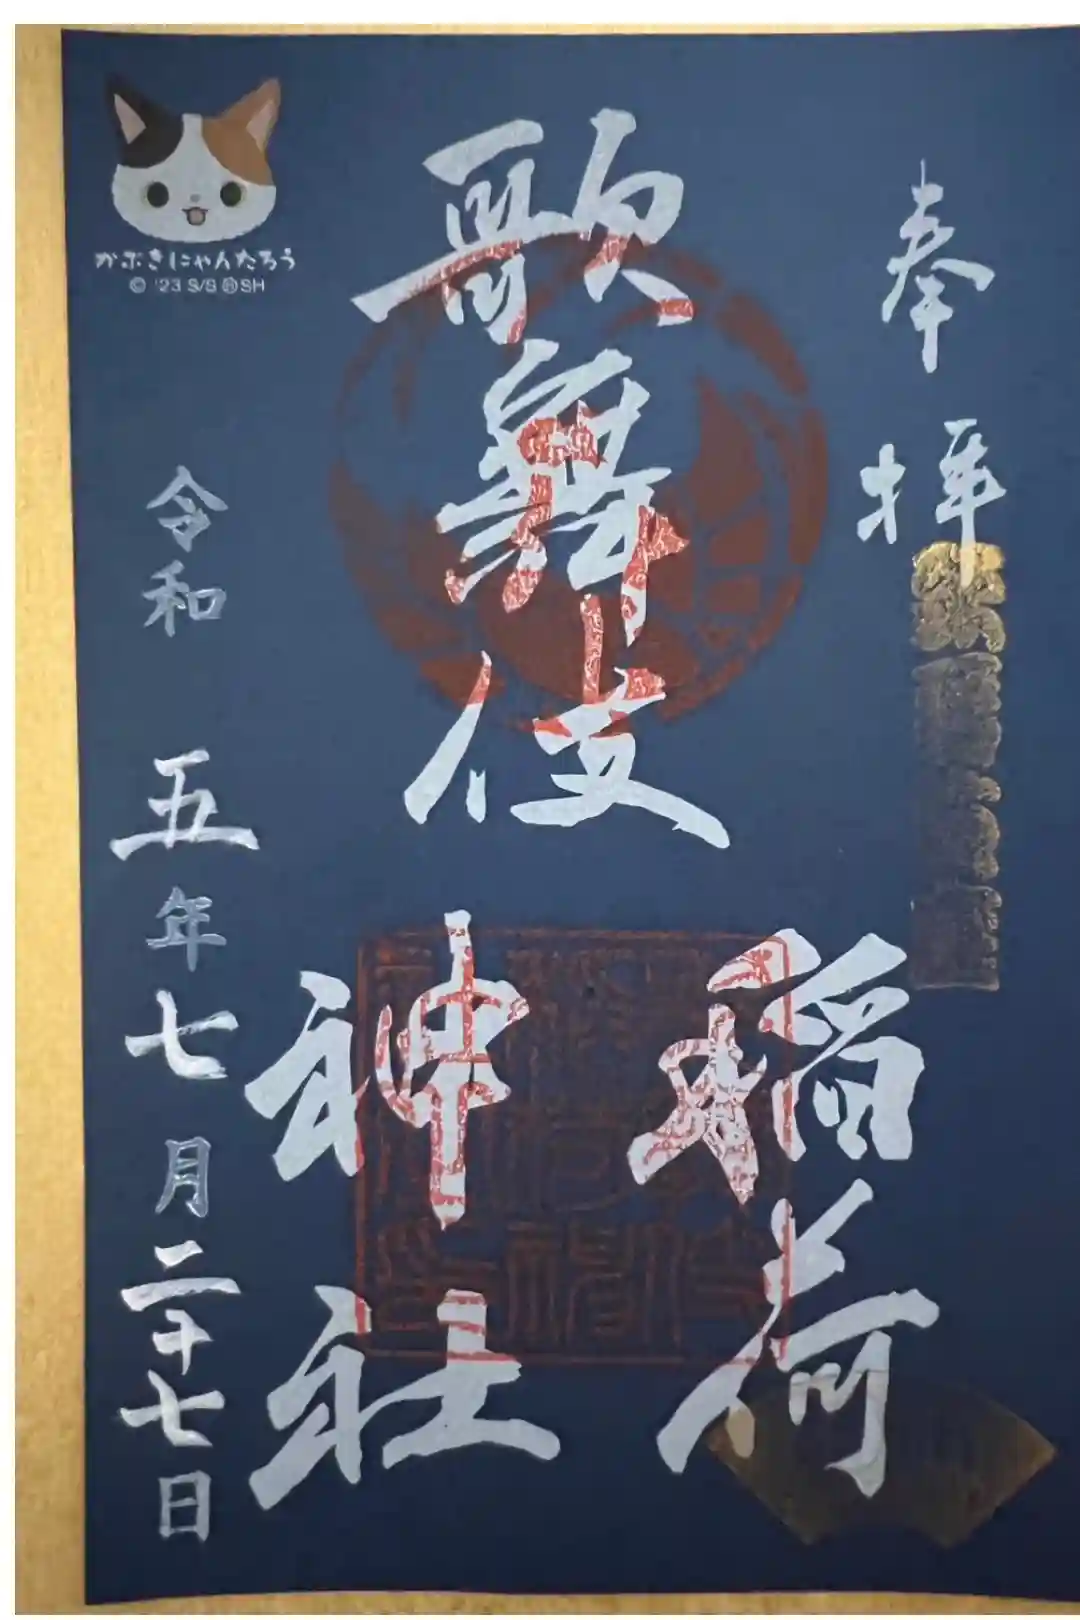 奉拝
歌舞伎
稲荷
神社
令和五年七月二十七日
かぶきにゃんたろう
© '23 S/S ㊕SH